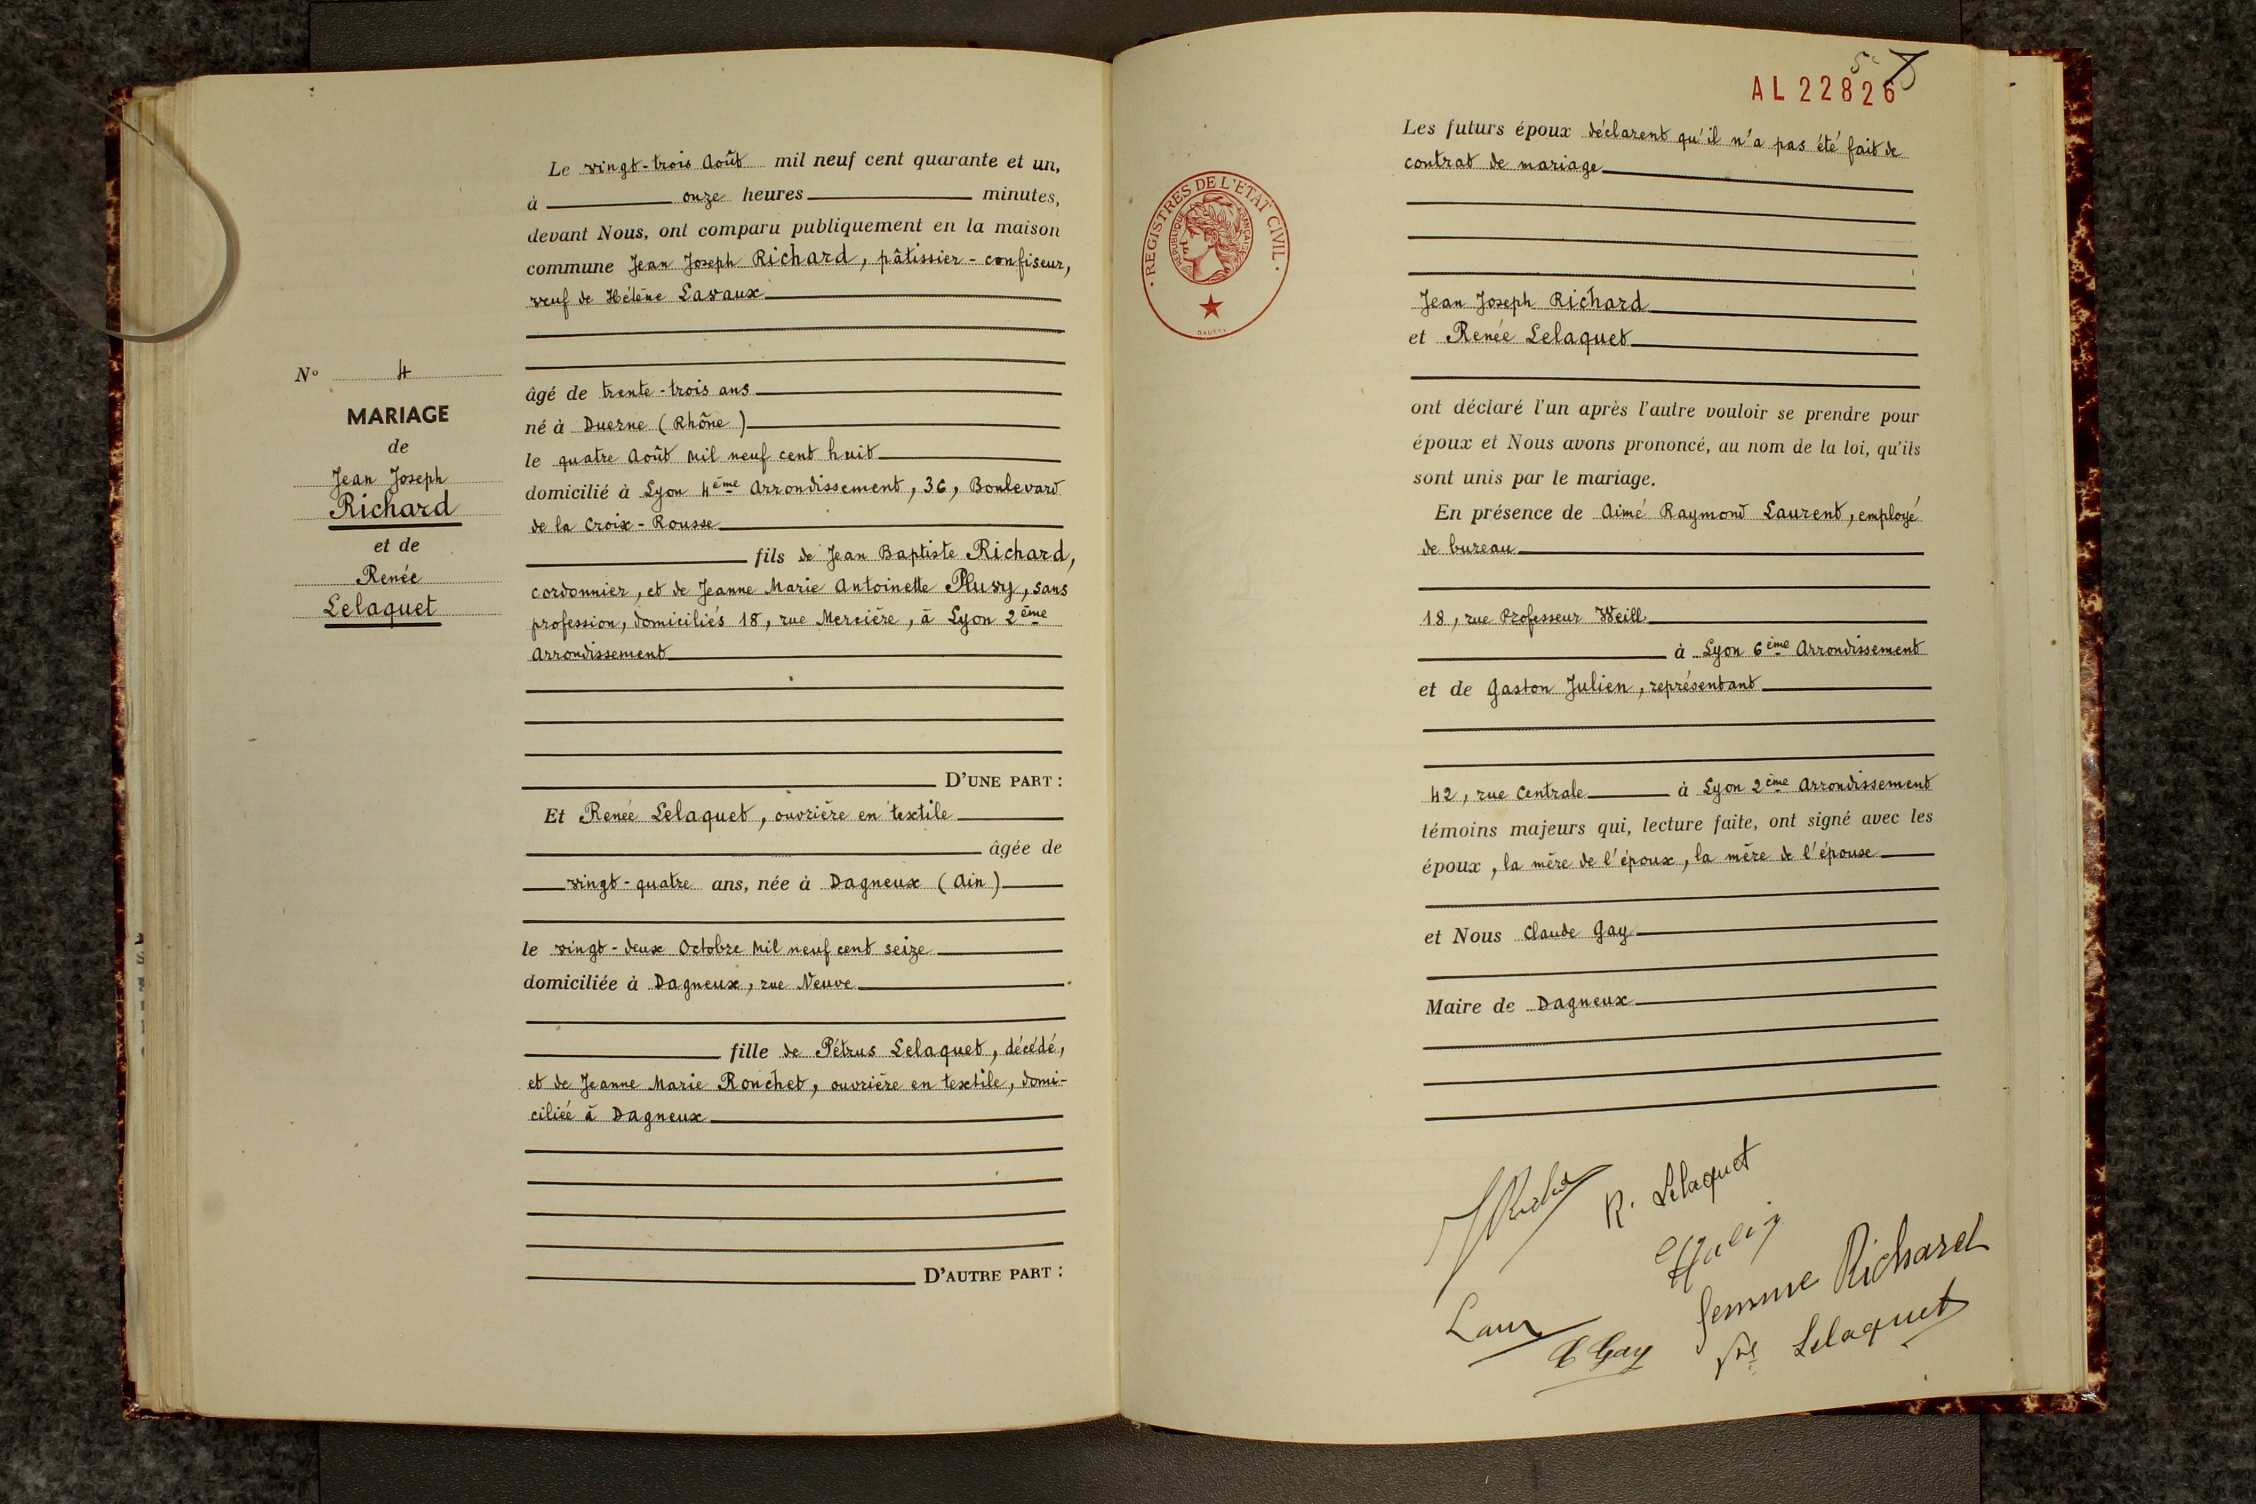 Le vingt-trois Août mil neuf cent quarante et un,
à onze heures minutes,
devant Nous, ont comparu publiquement en la maison
commune Jean Joseph Richard, pâtissier-confiseur,
veuf de Hélène Lavaux
N° 4
MARIAGE
de
Jean Joseph
Richard
et de
Renée
Lelaquet
âgé de trente-trois ans
né à Duerne (Rhône)
le quatre Août mil neuf cent huit
domicilié à Lyon 4ème Arrondissement, 36, Boulevard
de la Croix-Rousse
fils de Jean Baptiste Richard,
cordonnier, et de Jeanne Marie Antoinette Pluvy, sans
profession, domiciliés 18, rue Mercière, à Lyon 2ème
Arrondissement
D'UNE PART :
Et Renée Lelaquet, ouvrière en textile
âgée de
vingt-quatre ans, née à Dagneux (Ain)
le vingt-deux Octobre mil neuf cent seize
domiciliée à Dagneux, rue Neuve
fille de Pétrus Lelaquet, décédé,
et de Jeanne Marie Ronchet, ouvrière en textile, domi-
ciliée à Dagneux
D'AUTRE PART :
AL 22826
REGISTRES DE L'ETAT CIVIL
REPUBLIQUE FRANÇAISE
Les futurs époux déclarent qu'il n'a pas été fait de
contrat de mariage
Jean Joseph Richard
et Renée Lelaquet
ont déclaré l'un après l'autre vouloir se prendre pour
époux et Nous avons prononcé, au nom de la loi, qu'ils
sont unis par le mariage.
En présence de Aimé Raymond Laurent, employé
de bureau
18, rue Professeur Weill
à Lyon 6ème Arrondissement
et de Gaston Julien, représentant
42, rue Centrale à Lyon 2ème Arrondissement
témoins majeurs qui, lecture faite, ont signé avec les
époux, la mère de l'époux, la mère de l'épouse
et Nous Claude Gay
Maire de Dagneux
R. Lelaquet
femme Richard
C Gay
Vve Lelaquet